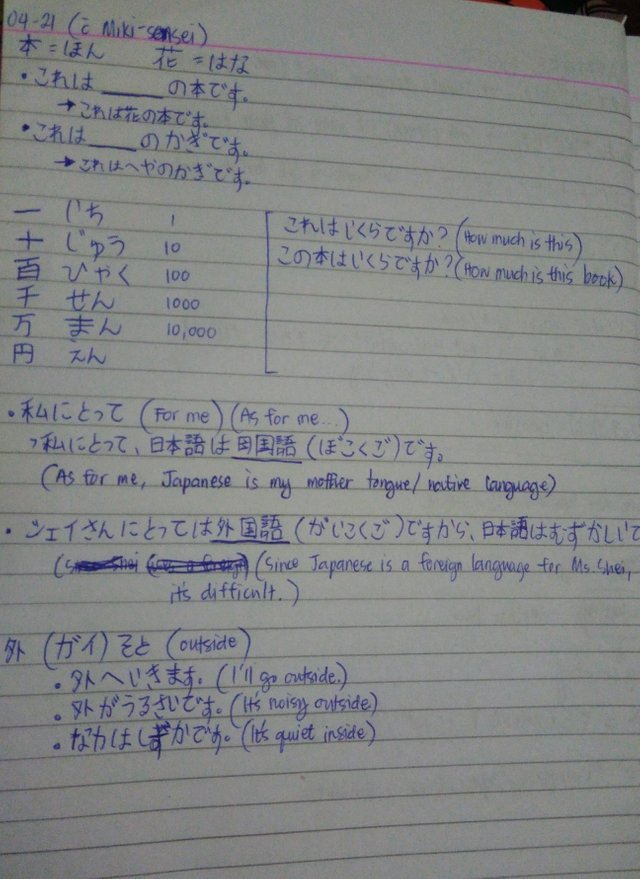 04-21 (c̄ Miki-sensei)
本 = ほん 花 = はな
• これは ______ の本です。
→ これは花の本です。
• これは ____ のかぎです。
→ これはへやのかぎです。
一 いち 1
十 じゅう 10
百 ひゃく 100
千 せん 1000
万 まん 10,000
円 えん
これはいくらですか? (How much is this)
この本はいくらですか? (How much is this book)
• 私にとって (For me) (As for me...)
→ 私にとって、日本語は母国語 (ぼこくご) です。
(As for me, Japanese is my mother tongue/native language)
• シェイさんにとっては外国語 (がいこくご) ですから、日本語はむずかしいで
(Since Japanese is a foreign language for Ms. Shei,
it's difficult.)
外 (ガイ) そと (outside)
• 外へいきます。(I'll go outside.)
• 外がうるさいです。(It's noisy outside.)
• なかはしずかです。(It's quiet inside)